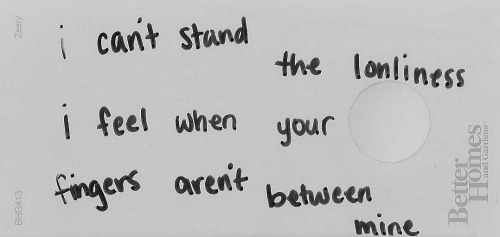 Zesty
i can't stand
the lonliness
i feel when your
fingers aren't between
mine
BHG413
Better
Homes
and Gardens